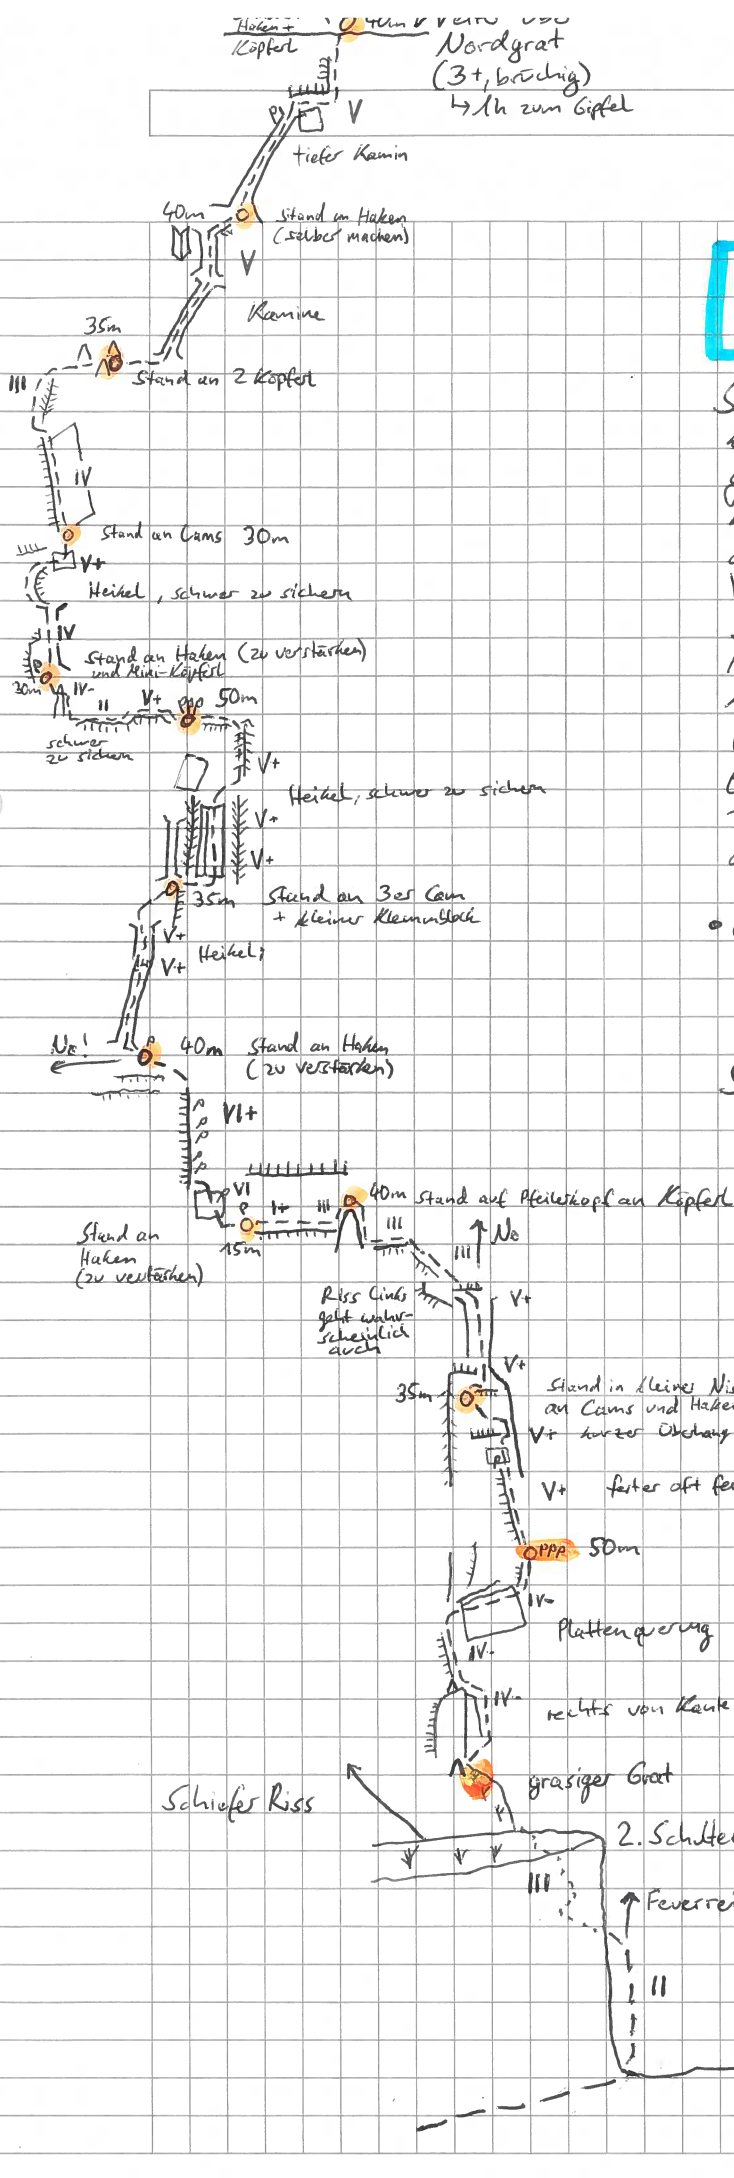 Haken +
Köpferl
40m
Nordgrat
(3+, brüchig)
↳ 1h zum Gipfel
P
V
tiefer Kamin
40m
Stand an Haken
(selber machen)
V
Kamine
35m
Stand an 2 Köpferl
III
IV
Stand an Cams 30m
V+
Heikel, schwer zu sichern
IV
Stand an Haken (zu verstärken)
und Mini-Köpferl
P
30m
IV-
II
V+
PPP
50m
schwer
zu sichern
V+
Heikel, schwer zu sichern
V+
V+
35m
Stand an 3er Cam
+ kleiner Klemmblock
V+
Heikel;
V+
No!
P
40m
Stand an Haken
(zu verstärken)
VI+
P
P
P
P
P
VI
P
I+
III
40m
Stand auf Pfeilerkopf an Köpferl
15m
Stand an
Haken
(zu verstärken)
III
III
No
Riss links
geht wahr-
scheinlich
auch
V+
V+
35m
Stand in kleiner
an Cams und
V+
kurzer Überhang
P
V+
fester oft
PPP
50m
IV-
Plattenquerung
IV-
IV-
rechts von Kante
grasiger Grat
Schiefer Riss
2.
III
II